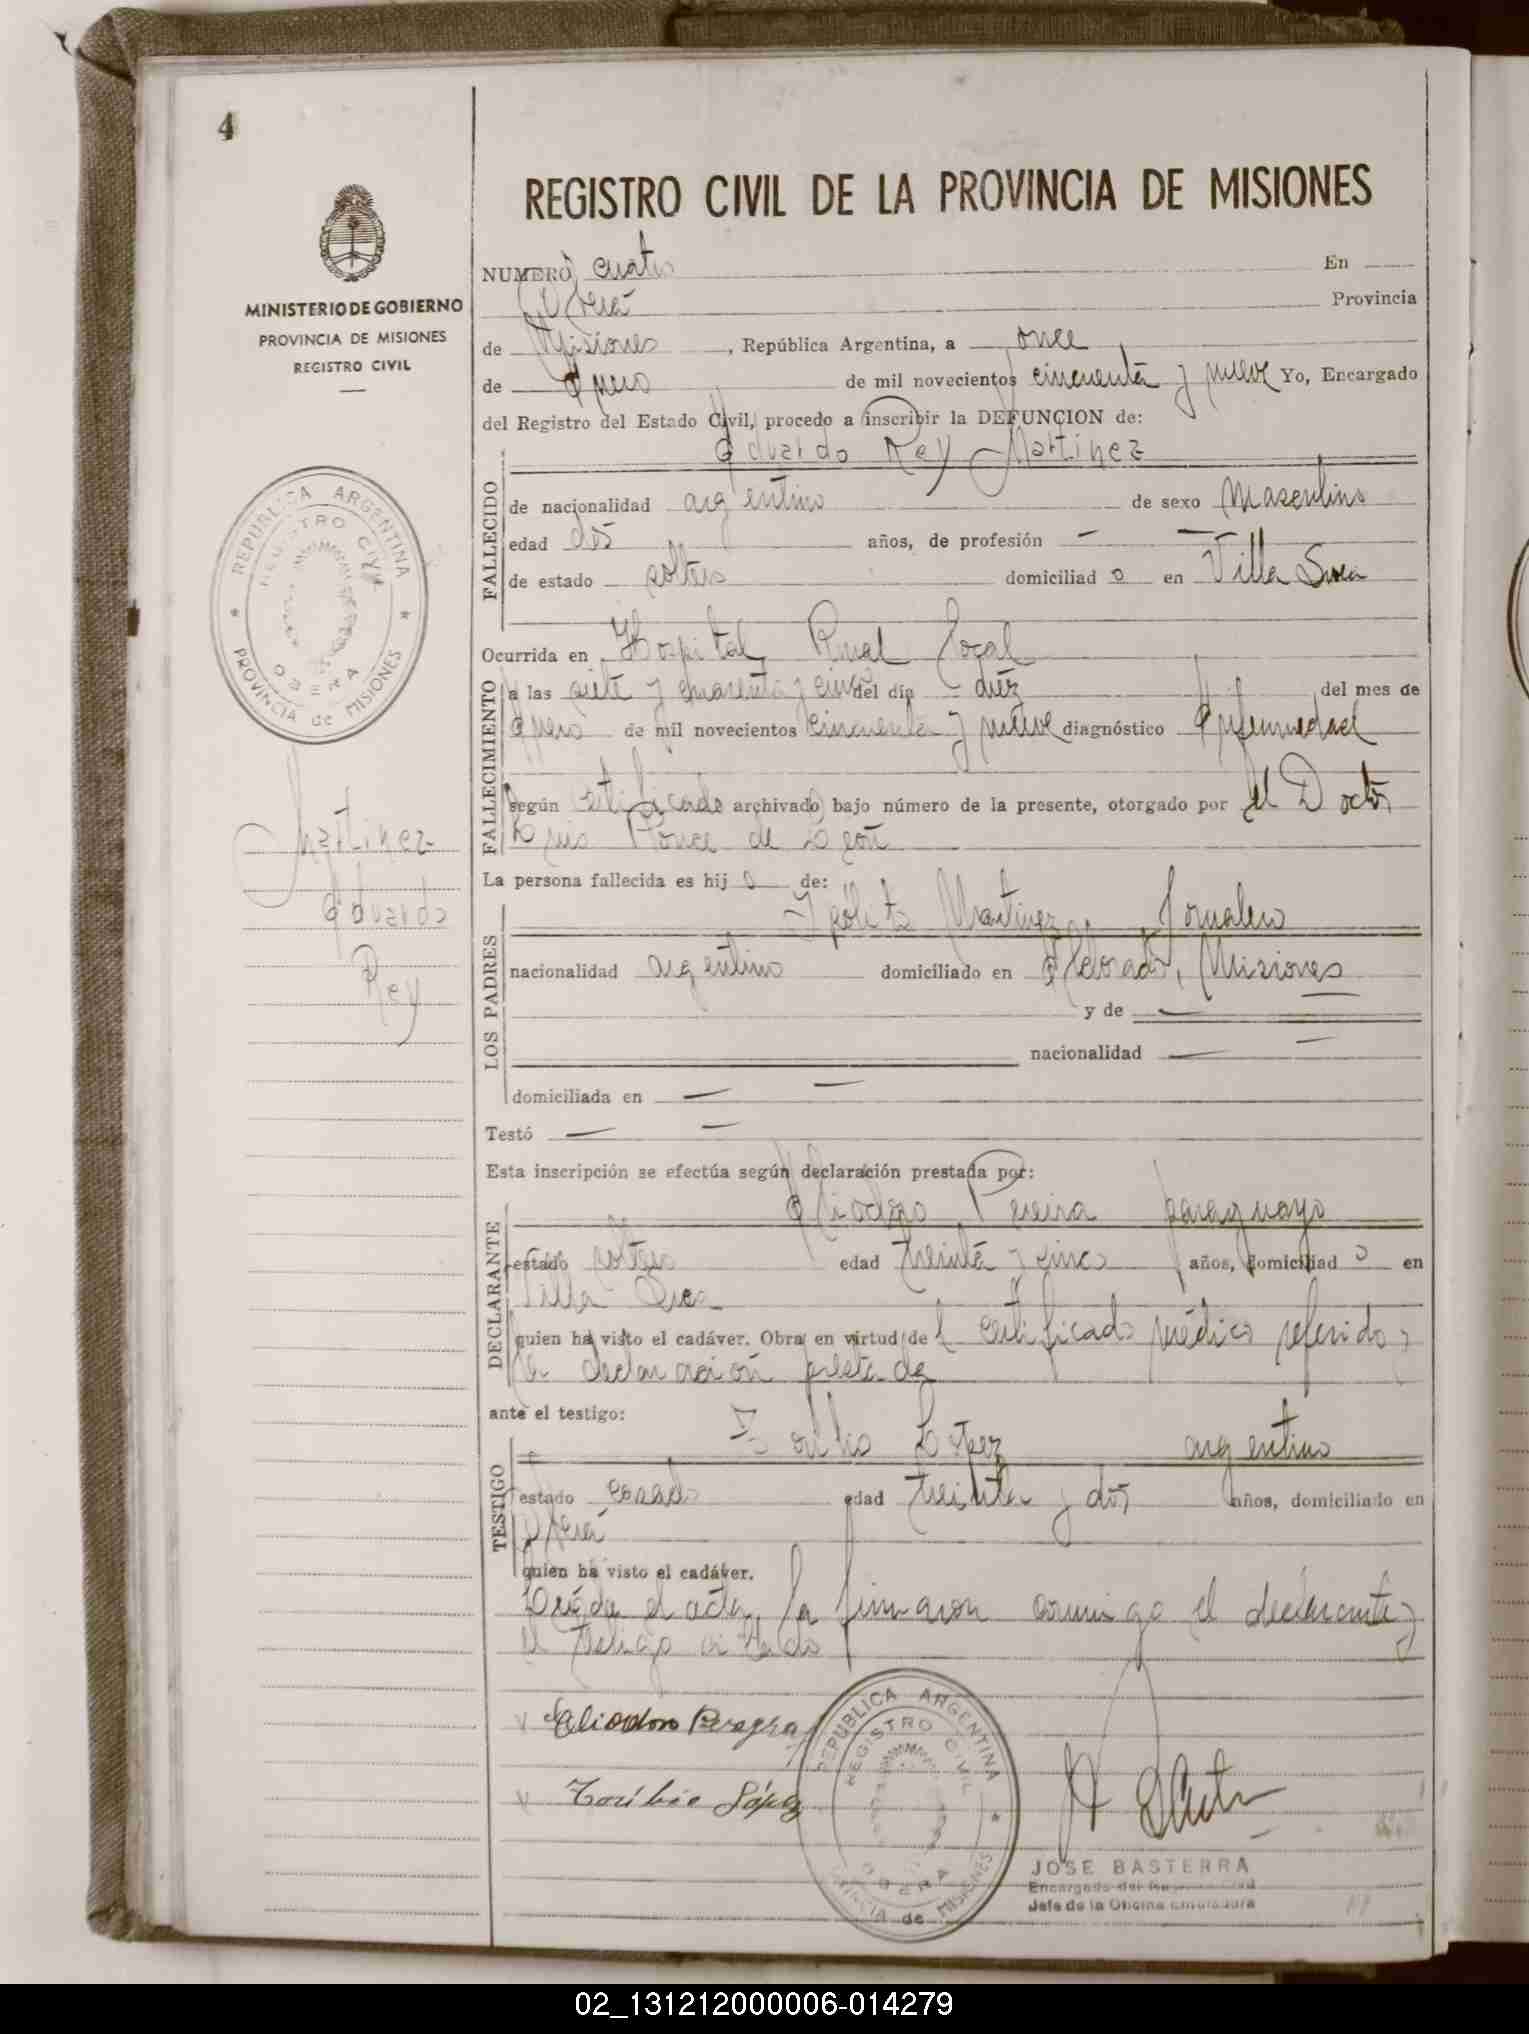 4
MINISTERIO DE GOBIERNO
PROVINCIA DE MISIONES
REGISTRO CIVIL
REPUBLICA ARGENTINA
REGISTRO CIVIL
OBERA
PROVINCIA de MISIONES
Martinez
Eduardo
Rey
REGISTRO CIVIL DE LA PROVINCIA DE MISIONES
NUMERO cuatro En
Oberá Provincia
de Misiones, República Argentina, a once
de Enero de mil novecientos cincuenta y nueve Yo, Encargado
del Registro del Estado Civil, procedo a inscribir la DEFUNCION de:
Eduardo Rey Martinez
FALLECIDO
de nacionalidad argentino de sexo Masculino
edad dos años, de profesión — —
de estado soltero domiciliad o en Villa Svea
Ocurrida en Hospital Rural Local
FALLECIMIENTO
a las siete y cuarenta y cinco del día diéz del mes de
Enero de mil novecientos cincuenta y nueve diagnóstico Enfermedad
según certificado archivado bajo número de la presente, otorgado por el Doctor
Luis Ponce de León
La persona fallecida es hij o de:
LOS PADRES
Ipólito Martinez Jornalero
nacionalidad argentino domiciliado en Eldorado, Misiones
y de —
nacionalidad — —
domiciliada en — —
Testó — —
Esta inscripción se efectúa según declaración prestada por:
DECLARANTE
Eliodoro Pereira paraguayo
estado soltero edad treinta y cinco años, domiciliad o en
Villa Svea
quien ha visto el cadáver. Obra en virtud de l certificado médico referido y
la declaración prestada
ante el testigo:
TESTIGO
Toribio López argentino
estado casado edad treinta y dos años, domiciliado en
Oberá
quien ha visto el cadáver.
Leída el acta, la firmaron conmigo el declarante y
el testigo citado
Eliodoro Pereyra
Toribio López
REPUBLICA ARGENTINA
REGISTRO CIVIL
OBERA
PROVINCIA de MISIONES
JOSE BASTERRA
Encargado del Registro Civil
Jefe de la Oficina Enroladora
02_131212000006-014279